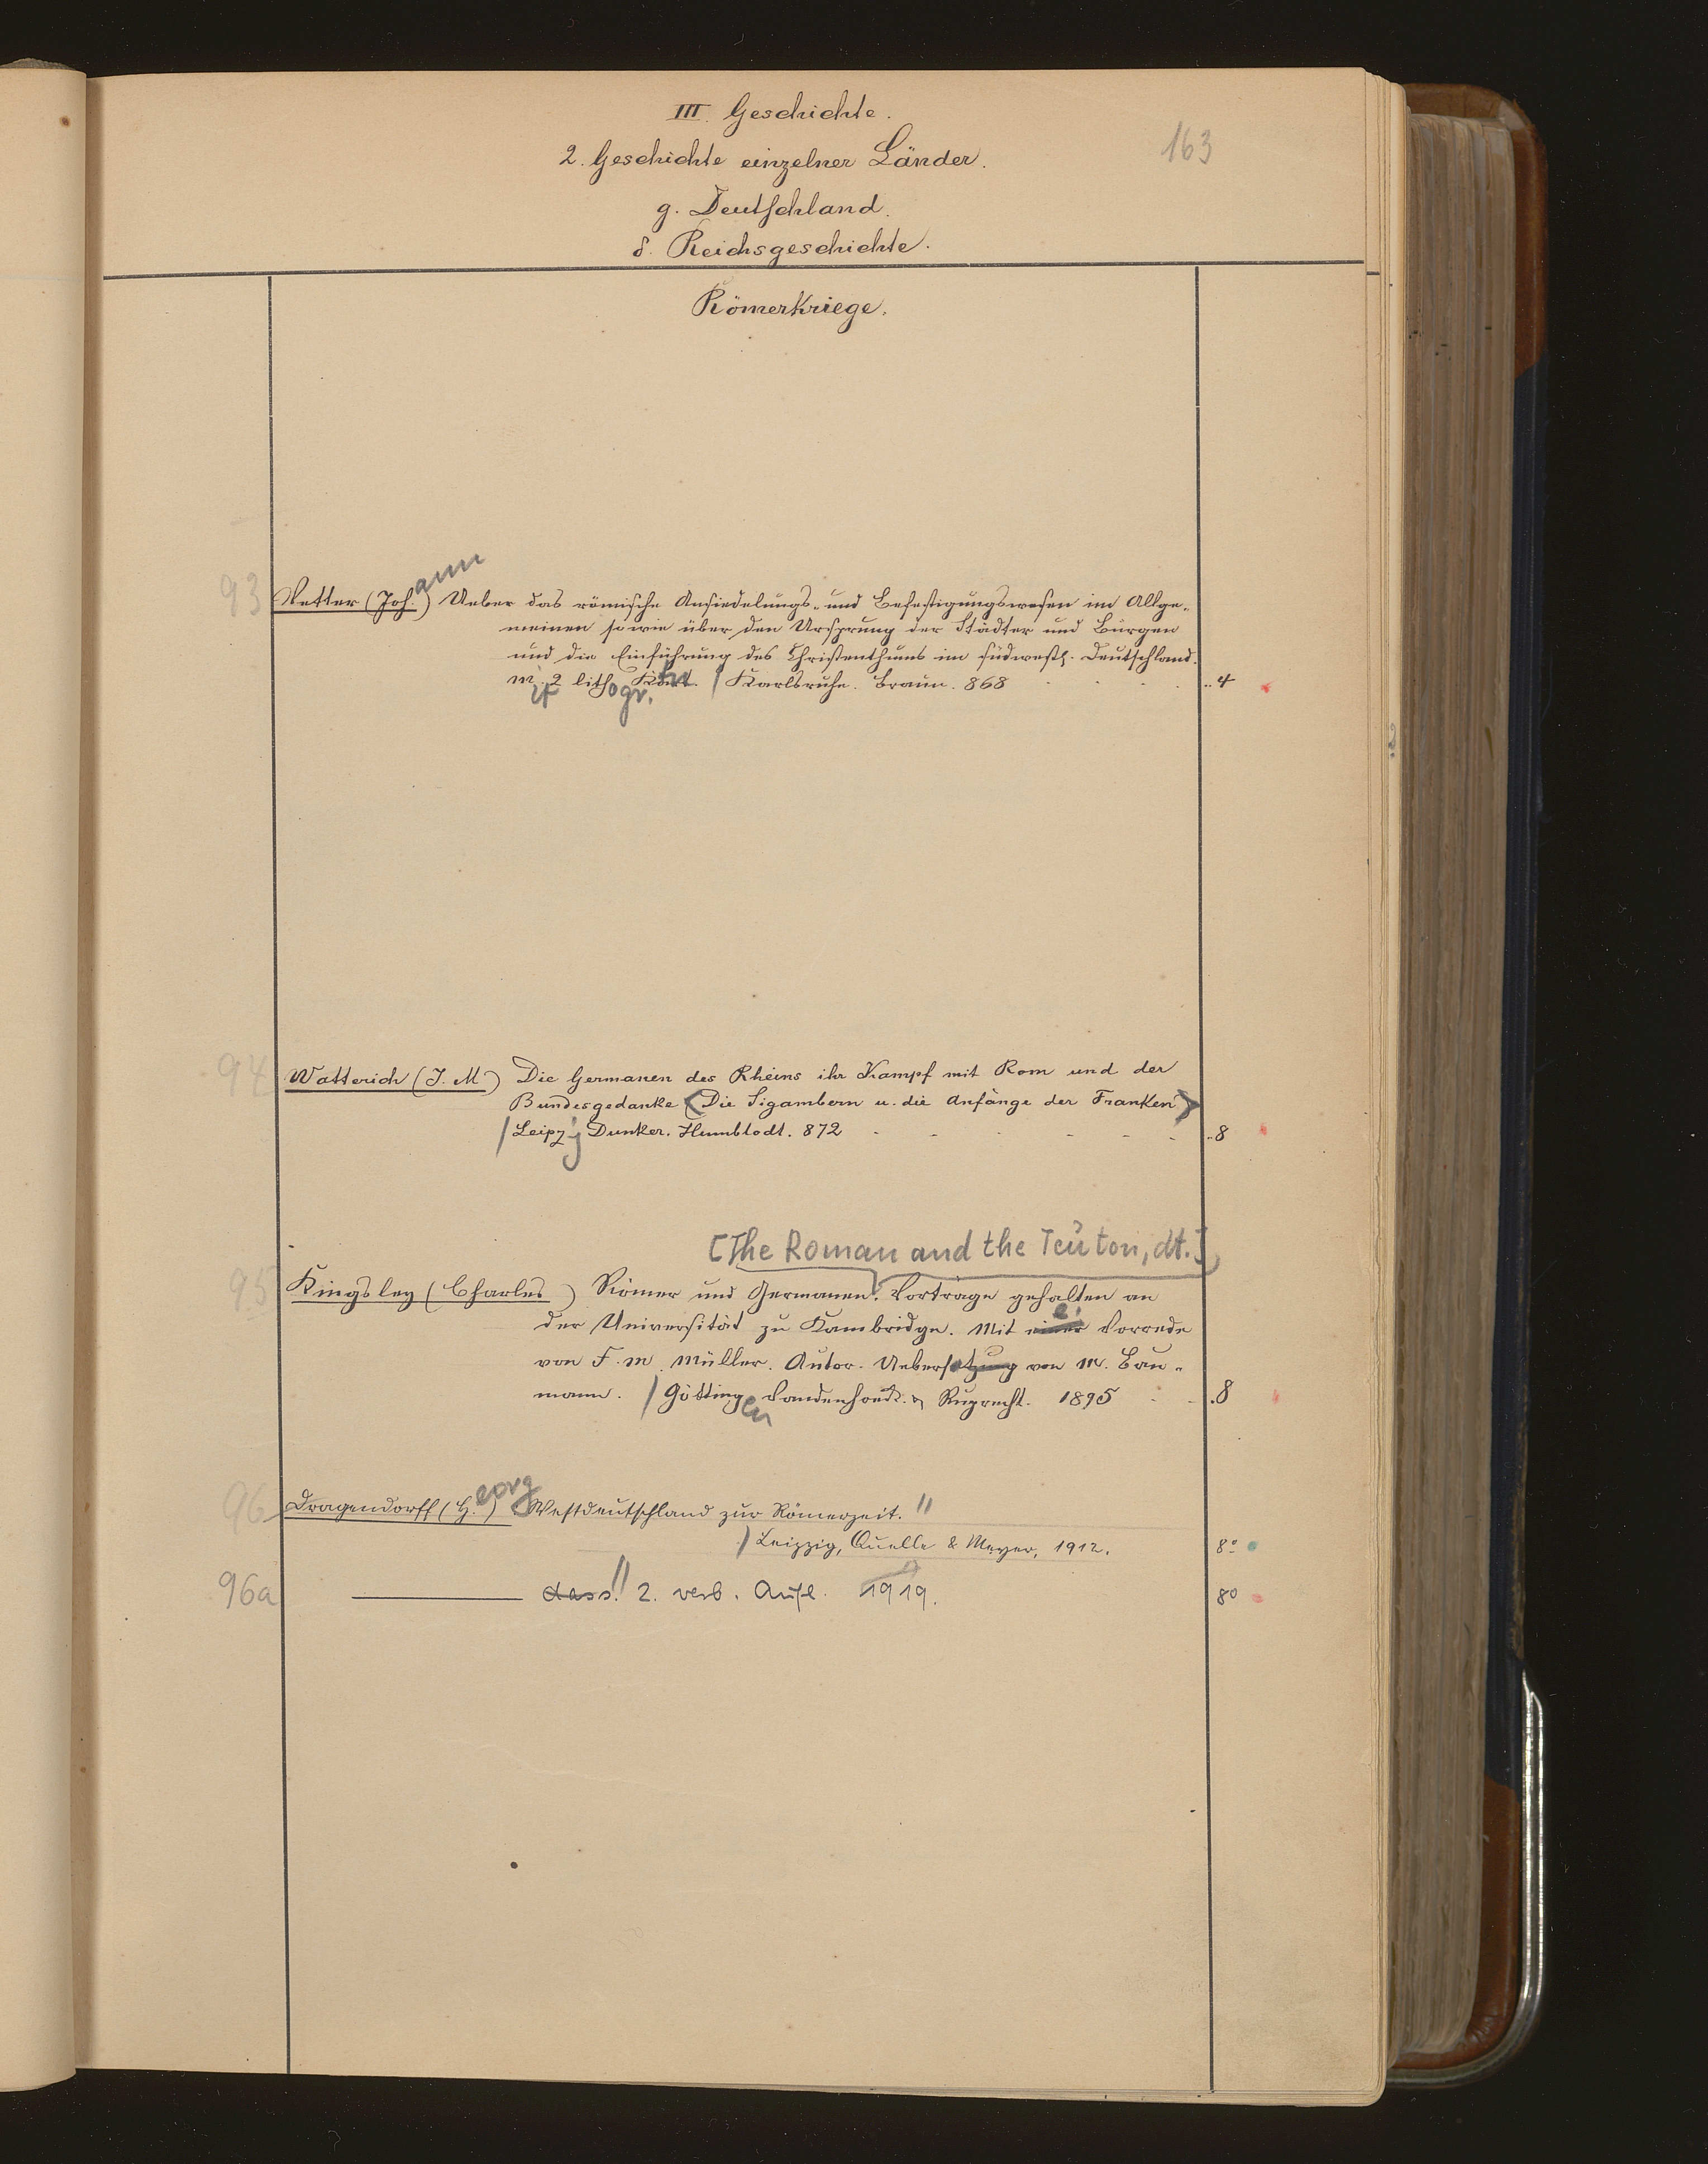 III. Geschichte.
163
2. Geschichte einzelner Länder.
g. Deutschland.
δ. Reichsgeschichte.
Römerkriege.
93 Vetter (Joh.ann) Ueber das römische Ansiedelungs- und Befestigungswesen im Allge-
meinen sowie über den Ursprung der Städter und Burgen
und die Einführung des Christenthums im südwestl. Deutschland.
m. 2 lithogr. / Karlsruhe. Braun. 868 4
94 Watterich (J. M) Die Germanen des Rheins ihr Kampf mit Rom und der
Bundesgedanke <Die Sigambern u. die Anfänge der Franken>
/ Leipzig Dunker. Humblodt. 872 8
[The Roman and the Teuton, dt.]
95 Kingsley (Charles) Römer und Germanen. Vorträge gehalten an
der Universität zu Kambridge. Mit einer e. Vorrede
von F. M. Müller. Autor. Uebersetzung von M. Bau-
mann. / Göttingen Vandenhoeck. & Ruprecht. 1895 8
96 Dragendorff (H.eorg) Westdeutschland zur Römerzeit. //
/ Leipzig, Quelle & Meyer, 1912. 8°
96a — dass. // 2. verb. Aufl. 1919. 8°